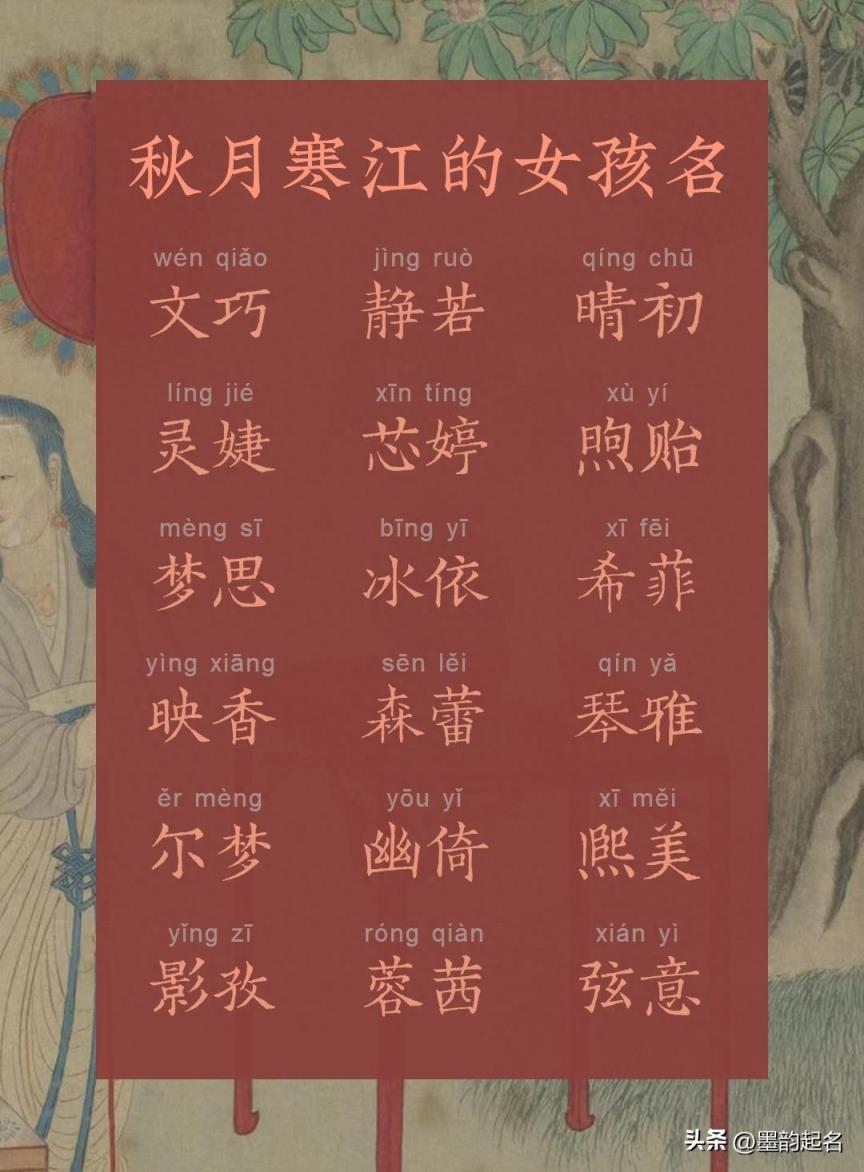 秋月寒江的女孩名
wén qiǎo jìng ruò qíng chū
文巧 静若 晴初
líng jié xīn tíng xù yí
灵婕 芯婷 煦贻
mèng sī bīng yī xī fēi
梦思 冰依 希菲
yìng xiāng sēn lěi qín yǎ
映香 森蕾 琴雅
ěr mèng yōu yǐ xī měi
尔梦 幽倚 熙美
yǐng zī róng qiàn xián yì
影孜 蓉茜 弦意
头条 @墨韵起名